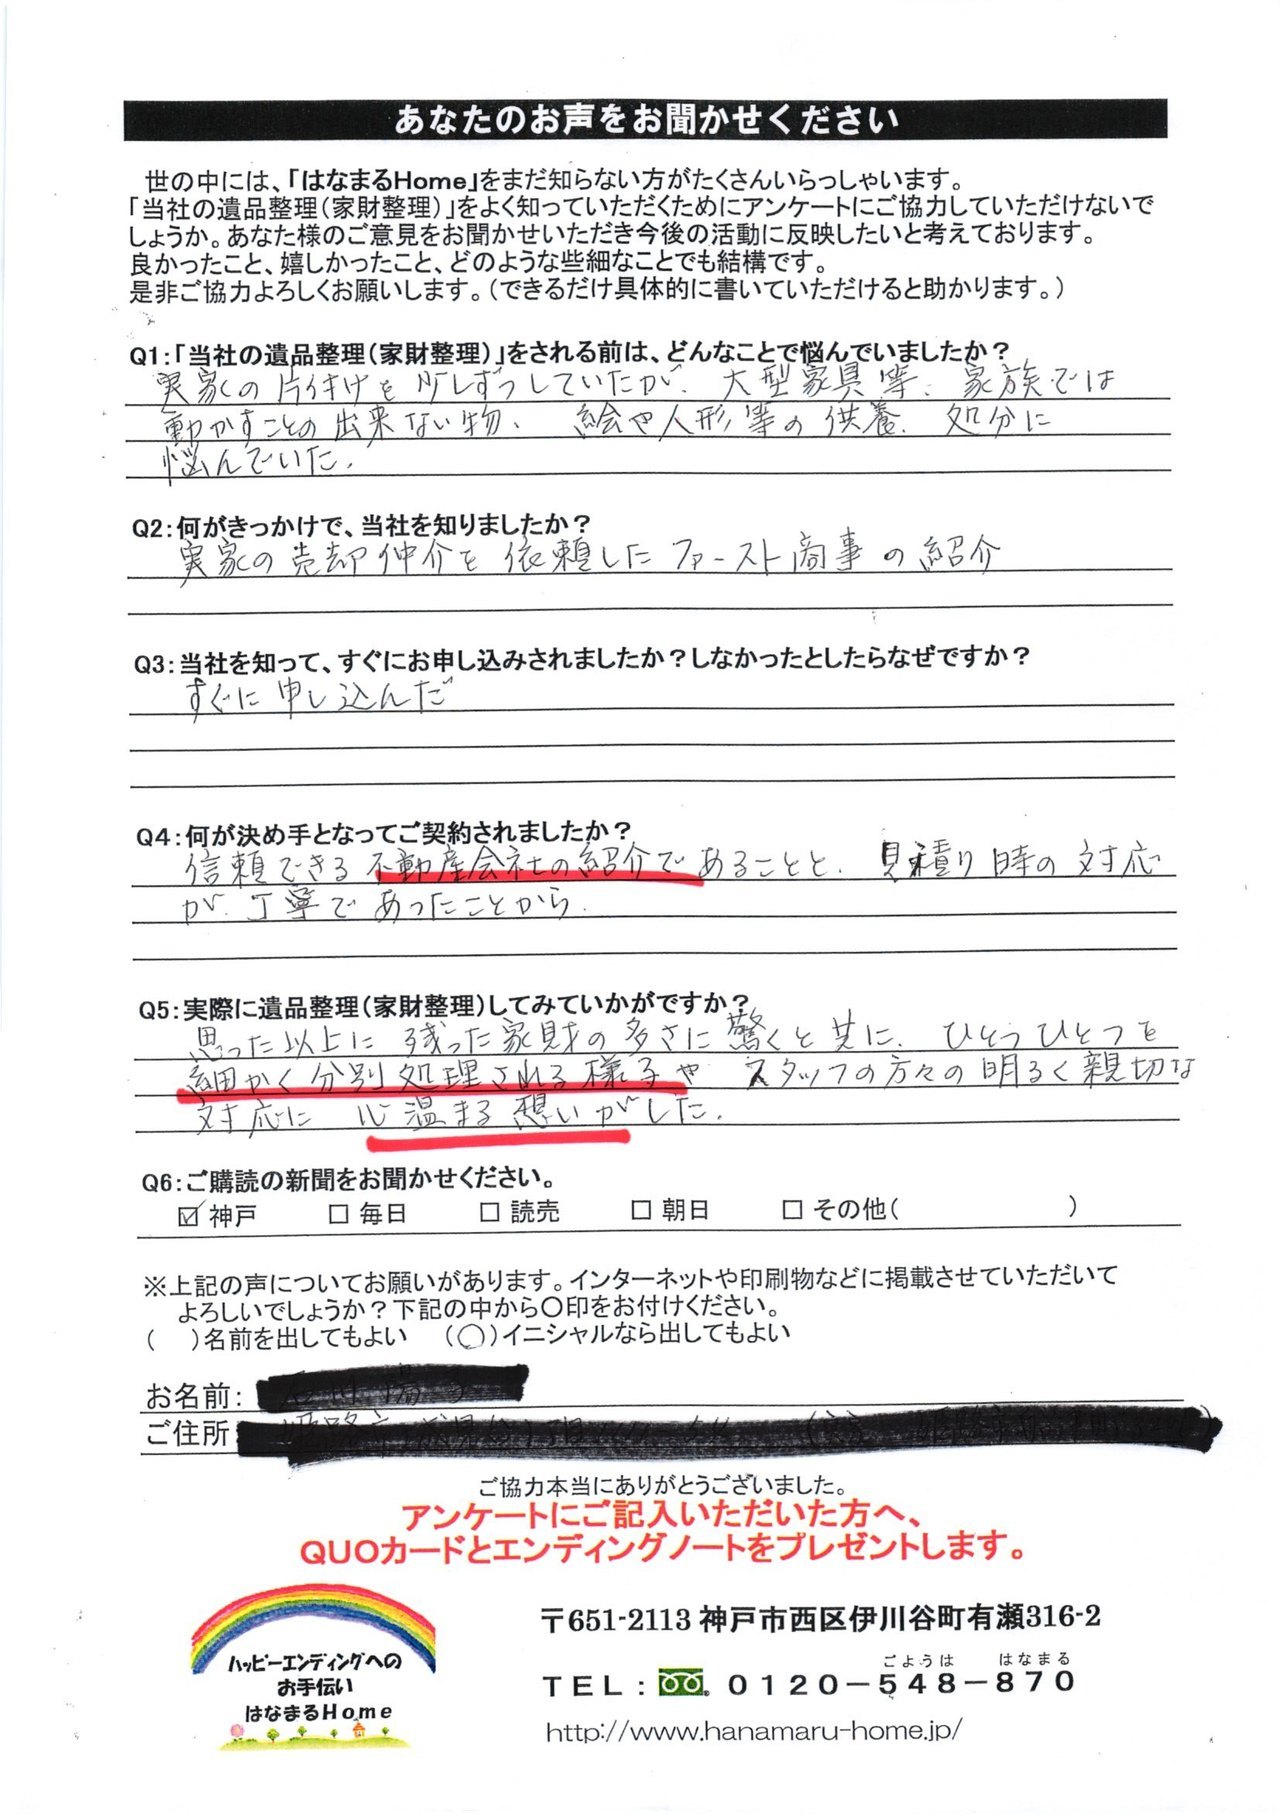 あなたのお声をお聞かせください
世の中には、「はなまるHome」をまだ知らない方がたくさんいらっしゃいます。
「当社の遺品整理(家財整理)」をよく知っていただくためにアンケートにご協力していただけないで
しょうか。あなた様のご意見をお聞かせいただき今後の活動に反映したいと考えております。
良かったこと、嬉しかったこと、どのような些細なことでも結構です。
是非ご協力よろしくお願いします。(できるだけ具体的に書いていただけると助かります。)
Q1:「当社の遺品整理(家財整理)」をされる前は、どんなことで悩んでいましたか?
実家の片付けを少しずつしていたが、大型家具等、家族では
動かすことの出来ない物、絵や人形等の供養、処分に
悩んでいた。
Q2:何がきっかけで、当社を知りましたか?
実家の売却仲介を依頼したファースト商事の紹介
Q3:当社を知って、すぐにお申し込みされましたか?しなかったとしたらなぜですか?
すぐに申し込んだ
Q4:何が決め手となってご契約されましたか?
信頼できる不動産会社の紹介であることと、見積り時の対応
が、丁寧であったことから。
Q5:実際に遺品整理(家財整理)してみていかがですか?
思った以上に残った家財の多さに驚くと共に、ひとつひとつを
細かく分別処理される様子や スタッフの方々の明るく親切な
対応に 心温まる想いがした。
Q6:ご購読の新聞をお聞かせください。
☑ 神戸 □ 毎日 □ 読売 □ 朝日 □ その他( )
※上記の声についてお願いがあります。インターネットや印刷物などに掲載させていただいて
よろしいでしょうか?下記の中から〇印をお付けください。
( )名前を出してもよい (〇)イニシャルなら出してもよい
お名前:
ご住所
ご協力本当にありがとうございました。
アンケートにご記入いただいた方へ、
QUOカードとエンディングノートをプレゼントします。
ハッピーエンディングへの
お手伝い
はなまるHome
〒651-2113 神戸市西区伊川谷町有瀬316-2
ごようは はなまる
TEL: 0120-548-870
http://www.hanamaru-home.jp/